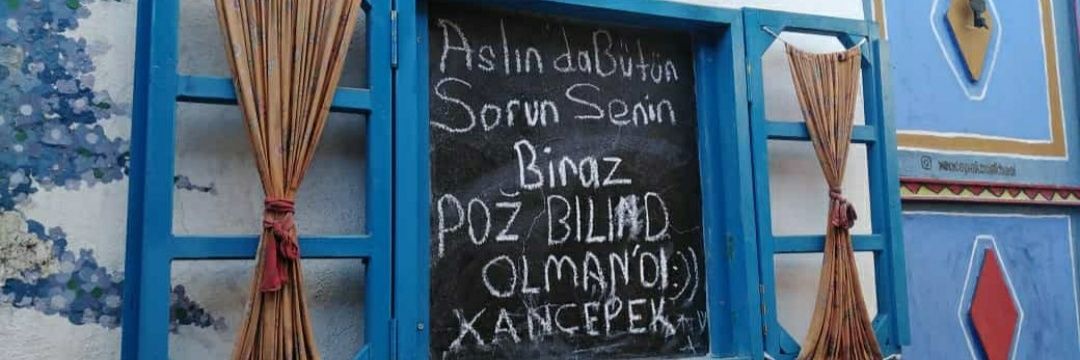 Aslın'da Bütün
Sorun Senin
Biraz
POŽ BILIND
OLMAN'DI:))
XANÇEPEK